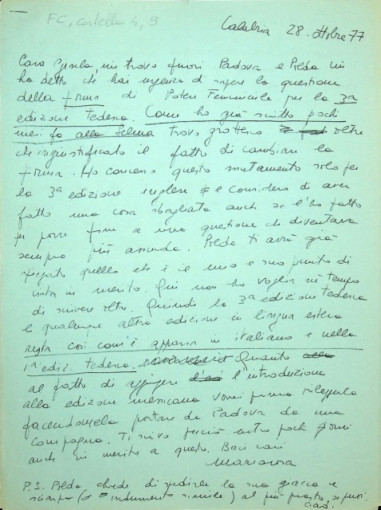 FC, cartella 4, 9
Calabria 28 ottobre 77
Cara Gisela mi trovo fuori Padova e Polda mi
ha detto che hai urgenza di sapere la questione
della firma di Potere Femminile per la 3ª
edizione Tedesca. Come ho già scritto pochi
mesi fa alla Selma trovo grottesco oltre
che ingiustificato il fatto di cambiare la
firma. Ho concesso questo mutamento solo per
la 3ª edizione inglese e considero di aver
fatto una cosa sbagliata anche se l'ho fatto
per porre fine a una questione che diventava
sempre più assurda. Polda ti avrà già
spiegato quello che è il mio e suo punto di
vista in merito. Qui non ho voglia nè tempo
di scrivere oltre. Quindi la 3ª edizione tedesca
e qualunque altra edizione in lingua estera
resta così com'è apparsa in italiano e nella
1ª ediz. tedesca. Quanto
al fatto di l'introduzione
alla edizione messicana vorrei prima rileggerla
facendomela portare da Padova da una
compagna. Ti scrivo perciò entro pochi giorni
anche in merito a questo. Baci cari
Mariarosa
P.S. Polda chiede di spedirle la sua giacca e
sciarpa (o indumento simile) al più presto, se puoi.
ciao.